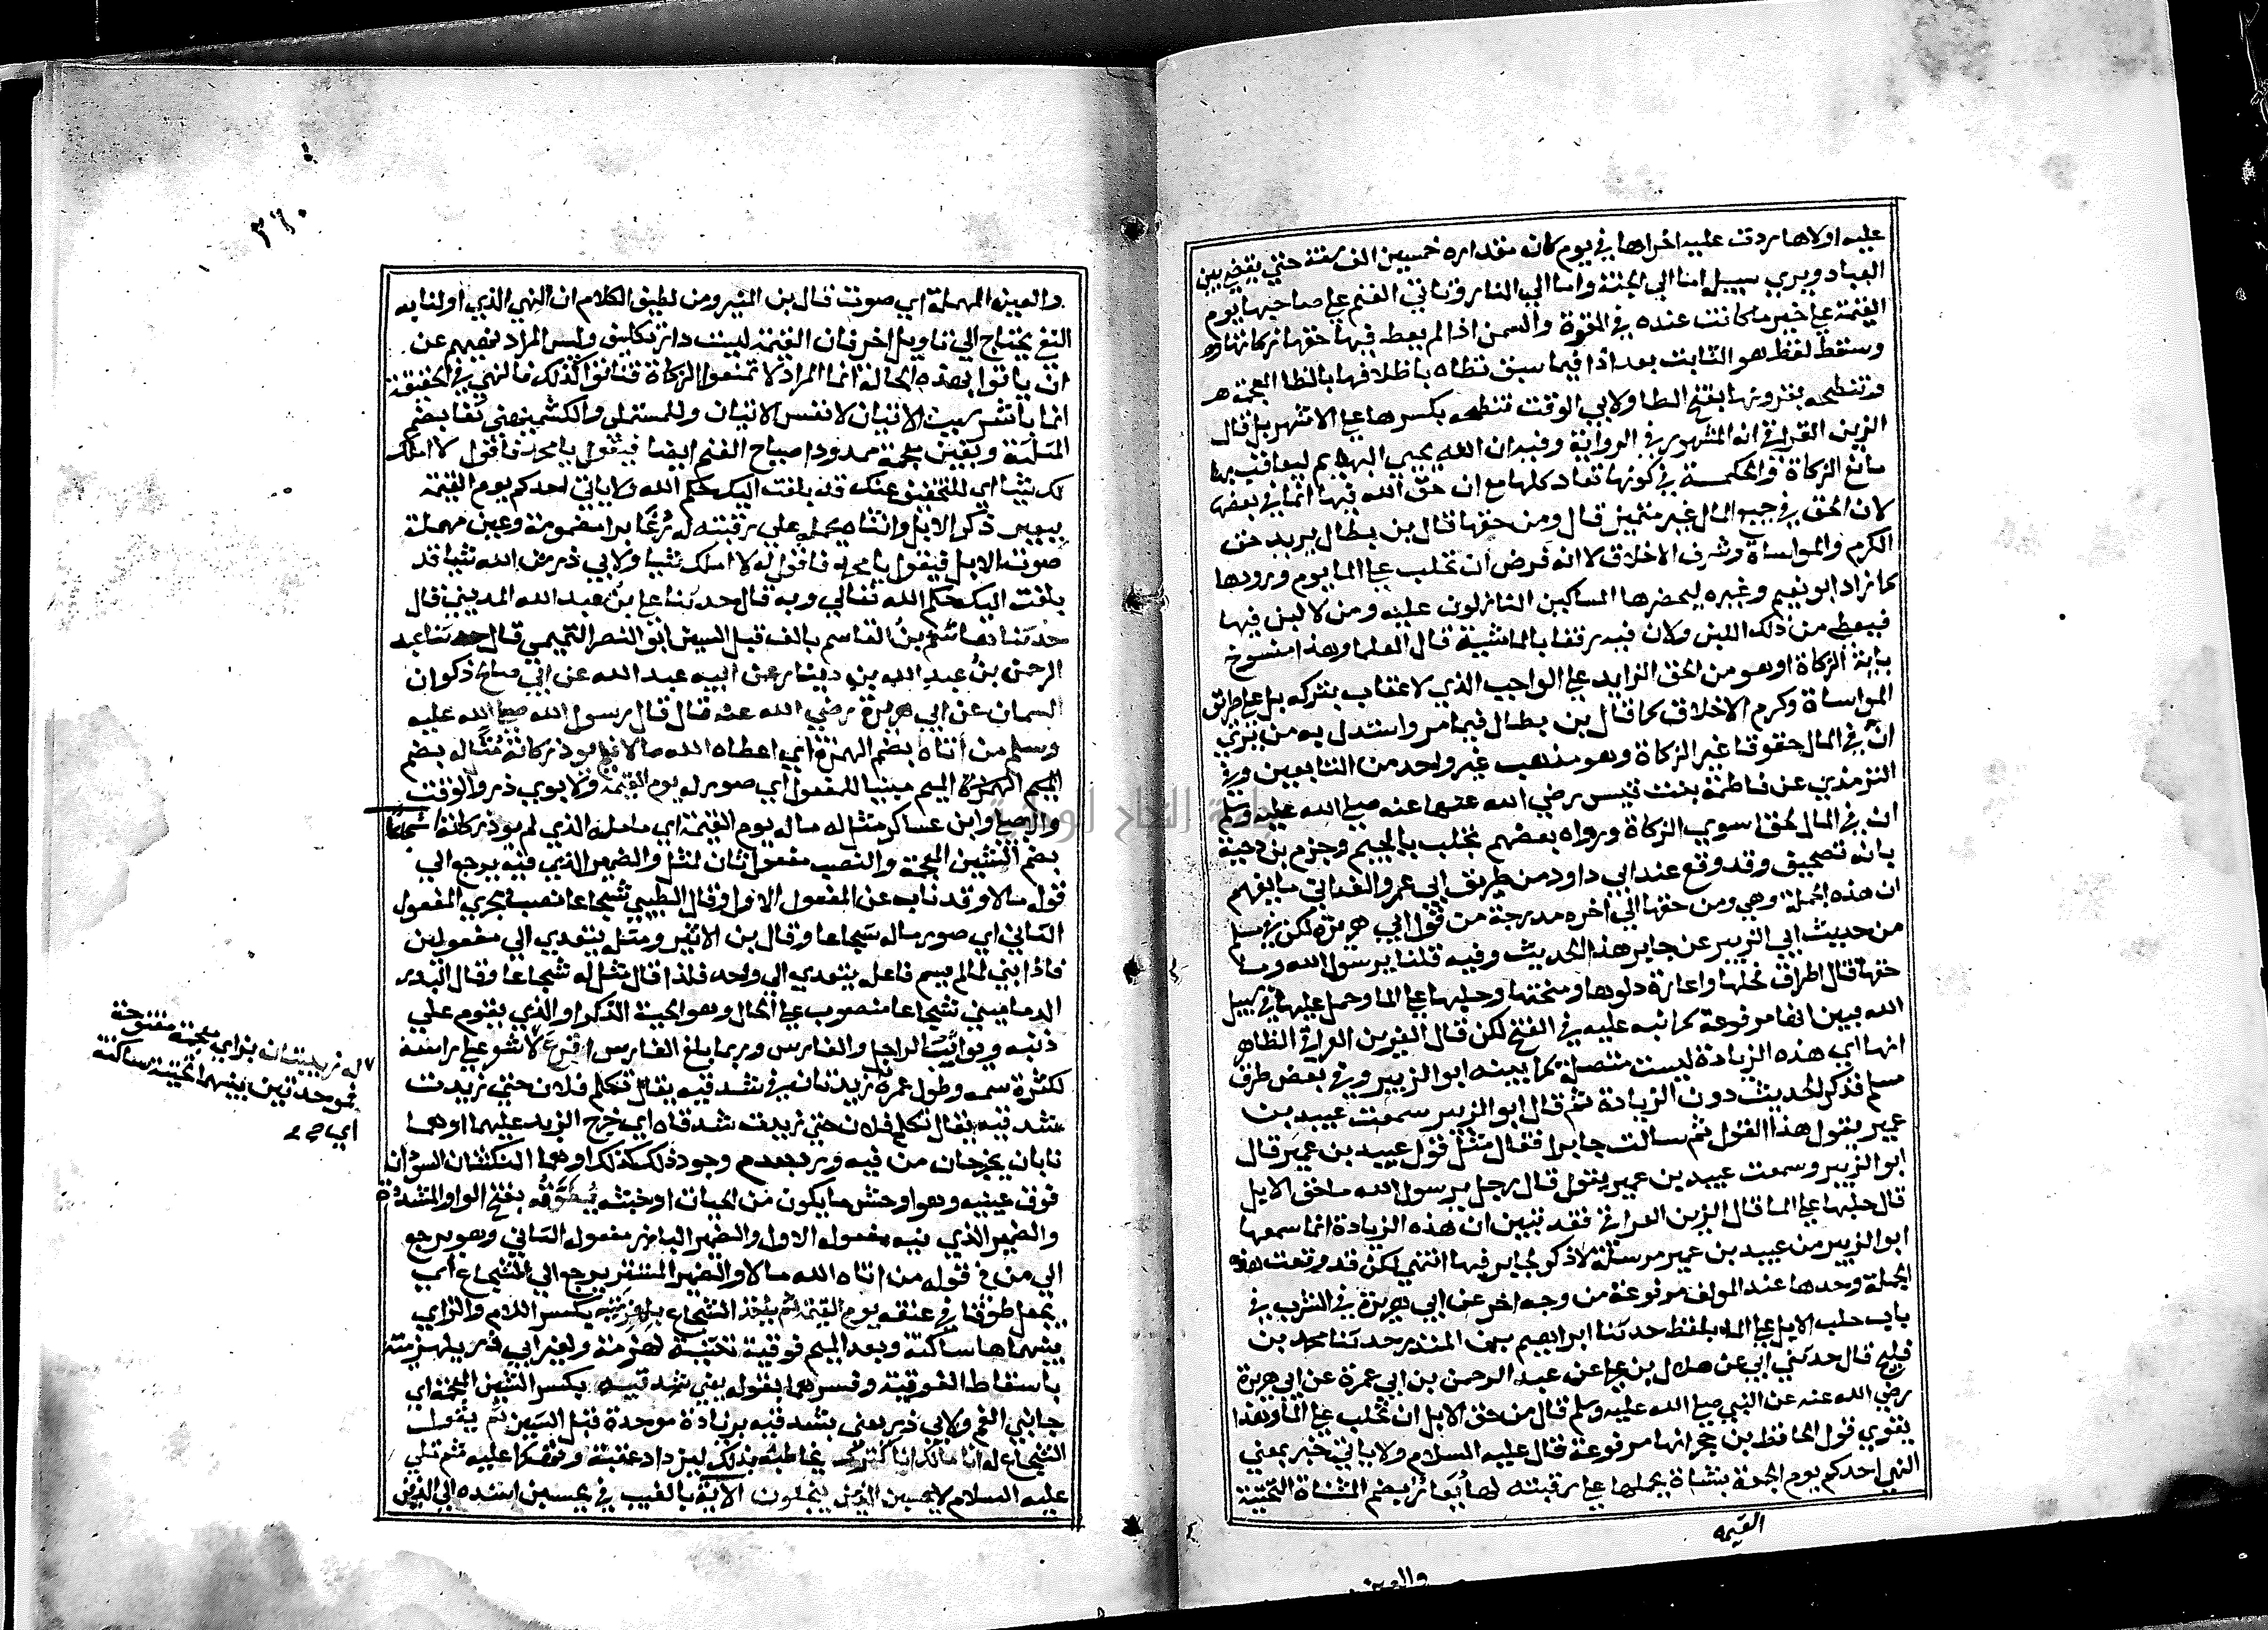 عليه اولاها ردت عليه اخراها في يوم كان مقداره خمسين الف سنة حتي يقضي بين
العباد ويري سبيله اما الي الجنة واما الي النار وتاتي الغنم علي صاحبها يوم
القيمة علي خير ما كانت عنده في القوة والسمن اذا لم يعط فيها حقها زكاتها
وسقط لفظ هو الثابت بعد اذا فيما سبق تطاه باظلافها بالظا المعجمة
وتنطحه بقرونها بفتح الطا ولابي الوقت تنطحه بكسرها علي الاشهر بل قال
الزين العراقي انه المشهور في الرواية وفيه ان الله يحيي البهايم ليعاقب بها
مانع الزكاة والحكمة في كونها تعاد كلها مع ان حق الله فيها انما في بعضها
لان الحق في جميع المال غير متميز قال ومن حقها قال بن بطال يريد حق
الكرم والمواساة وشرف الاخلاق لا انه فرض ان تحلب علي الما يوم ورودها
كما زاد ابو نعيم وغيره ليحضرها المساكين النازلون عليه ومن لا لبن فيها
فيعطي من ذلك اللبن ولان فيه رفقا بالماشية قال العلما وهذا منسوخ
باية الزكاة او هو من الحق الزايد علي الواجب الذي لا عقاب بتركه بل علي طريق
المواساة وكرم الاخلاق كما قال بن بطال فيما مر واستدل به من يري
ان في المال حقوقا غير الزكاة وهو مذهب غير واحد من التابعين وفي
الترمذي عن فاطمة بنت قيس رضي الله عنها عنه صلي الله عليه وسلم
ان في المال لحقا سوي الزكاة ورواه بعضهم تجلب بالجيم وجزم بن دحية
بانه تصحيف وقد وقع عند ابي داود من طريق ابي عمرو الغداني ما يفهم
ان هذه الجملة وهي ومن حقها الي اخره مدرجة من قول ابي هريرة لكن في مسلم
من حديث ابي الزبير عن جابر هذا الحديث وفيه قلنا يرسول الله وما
حقها قال اطراق فحلها واعارة دلوها ومنحتها وحلبها علي الما وحمل عليها في سبيل
الله فبين انها مرفوعة كما نبه عليه في الفتح لكن قال الزين العراقي الظاهر
انها اي هذه الزيادة ليست متصلة كما بينه ابو الزبير وفي بعض طرق
مسلم فذكر الحديث دون الزيادة ثم قال ابو الزبير سمعت عبيد بن
عمير يقول هذا القول ثم سالت جابرا فقال مثل قول عبيد بن عمير قال
ابو الزبير وسمعت عبيد بن عمير يقول قال رجل يرسول الله ما حق الابل
قال حلبها علي الما قال الزين العراقي فقد تبين ان هذه الزيادة انما سمعها
ابو الزبير من عبيد بن عمير مرسلة لا ذكر لجابر فيها انتهي لكن قد وقعت هذه
الجملة وحدها عند المولف مرفوعة من وجه اخر عن ابي هريرة في الشرب في
باب حلب الابل علي الما بلفظ حدثنا ابراهيم بن المنذر حدثنا محمد بن
فليح قال حدثني ابي عن هلال بن علي عن عبد الرحمن بن ابي عمرة عن ابي هريرة
رضي الله عنه عن النبي صلي الله عليه وسلم قال من حق الابل ان تحلب علي الما وهذا
يقوي قول الحافظ بن حجر انها مرفوعة قال عليه السلام ولا ياتي خبر بمعني
النهي احدكم يوم القيمة بشاة يحملها علي رقبته لها يعار بضم المثناة التحتية
القيمه
والعين
٣٦٠
والعين المهملة اي صوت قال بن المنير ومن لطيف الكلام ان النهي الذي اولنا به
النفي يحتاج الي تاويل اخر فان القيمة ليست دار تكليف وليس المراد نهيهم عن
ان ياتوا بهذه الحالة انما المراد لا تمنعوا الزكاة فتاتوا كذلك فالنهي في الحقيقة
انما باشر سبب الاتيان لا نفس الاتيان وللمستملي والكشميهني ثغا بضم
المثلثة وبغين معجمة ممدودا صياح الغنم ايضا فيقول يا محمد فاقول لا املك
لك شيا اي للتخفيف عنك قد بلغت اليك حكم الله ولا ياتي احدكم يوم القيمة
ببعير ذكر الابل وانثاه يحمله علي رقبته له رغا برا مضمومة وغين معجمة
صوت الابل فيقول يا محمد فاقول له لا املك شيا ولابي ذر من الله شيا قد
بلغت اليك حكم الله تعالي وبه قال حدثنا علي بن عبد الله المديني قال
حدثنا هاشم بن القاسم بالف قبل السين ابو النضر التميمي قال حدثنا عبد
الرحمن بن عبد الله بن دينار عن ابيه عبد الله عن ابي صالح ذكوان
السمان عن ابي هريرة رضي الله عنه قال قال رسول الله صلي الله عليه
وسلم من اتاه بضم الهمزة اي اعطاه الله مالا فلم يود زكاته مثل له بضم
الميم مبنيا للمفعول اي صور له يوم القيمة ولابوي ذر والوقت
والاصيلي وابن عساكر مثل له ماله يوم القيمة اي ماله الذي لم يود زكاته شجاعا
بضم الشين المعجمة والنصب مفعول ثان لمثل والضمير الذي فيه يرجع الي
قوله مالا وقد ناب عن المفعول الاول وقال الطيبي شجاعا نصب يجري المفعول
الثاني اي صور ماله شجاعا وقال بن الاثير ومثل يتعدي الي مفعولين
فاذا بني لما لم يسم فاعله يتعدي الي واحد فلذا قال مثل له شجاعا وقال البدر
الدماميني شجاعا منصوب علي الحال وهو الحية الذكر او الذي يقوم علي
ذنبه ويواثب الراجل والفارس وربما بلغ الفارس اقرع لا شعر علي راسه
لكثرة سمه وطول عمره زبيبتان في شدقيه يقال تكلم فلان حتي زببت
شدقيه يقال تكلم فلان حتي زببت شدقاه اي خرج الزبد عليهما او هما
نابان يخرجان من فيه ورد بعدم وجود ذلك كذلك او هما النكتتان السوداوان
فوق عينيه وهو اوحش ما يكون من الحيات واخبثه يطوقه بفتح الواو المشددة
والضمير الذي فيه مفعوله الاول والضمير البارز مفعوله الثاني وهو يرجع
الي من في قوله من اتاه الله مالا والضمير المستتر يرجع الي الشجاع اي
يجعل طوقا في عنقه يوم القيمة ثم ياخذ الشجاع بلهزمتيه بكسر اللام والزاي
بينهما ها ساكنة وبعد الميم فوقية تثنية لهزمة ولغير ابي ذر بلهزميه
باسقاط الفوقية وفسرهما بقوله يعني شدقيه بكسر الشين المعجمة اي
جانبي الفم ولابي ذر يعني بشدقيه بزيادة موحدة قبل الشين ثم يقول
الشجاع له انا مالك انا كنزك يخاطبه بذلك ليزداد غصة وتهكما عليه ثم تلي
عليه السلام لا يحسبن الذين يبخلون الاية بالغيب في يحسبن اسنده الي الذين
له زبيبتان بزاي معجمة مفتوحة
فموحدتين بينهما تحتية ساكنة
اي